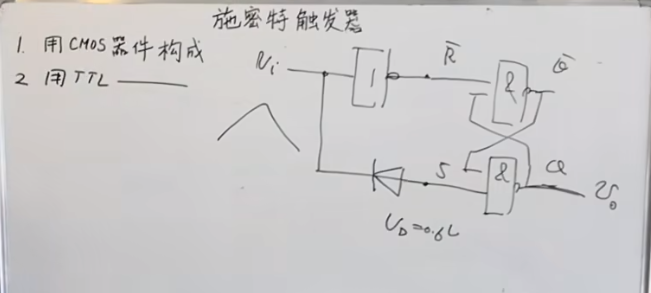 施密特触发器
1. 用CMOS器件构成
2 用TTL
Vi
1
R̄
&
Q̄
S
&
Q
U₀
U_D=0.6